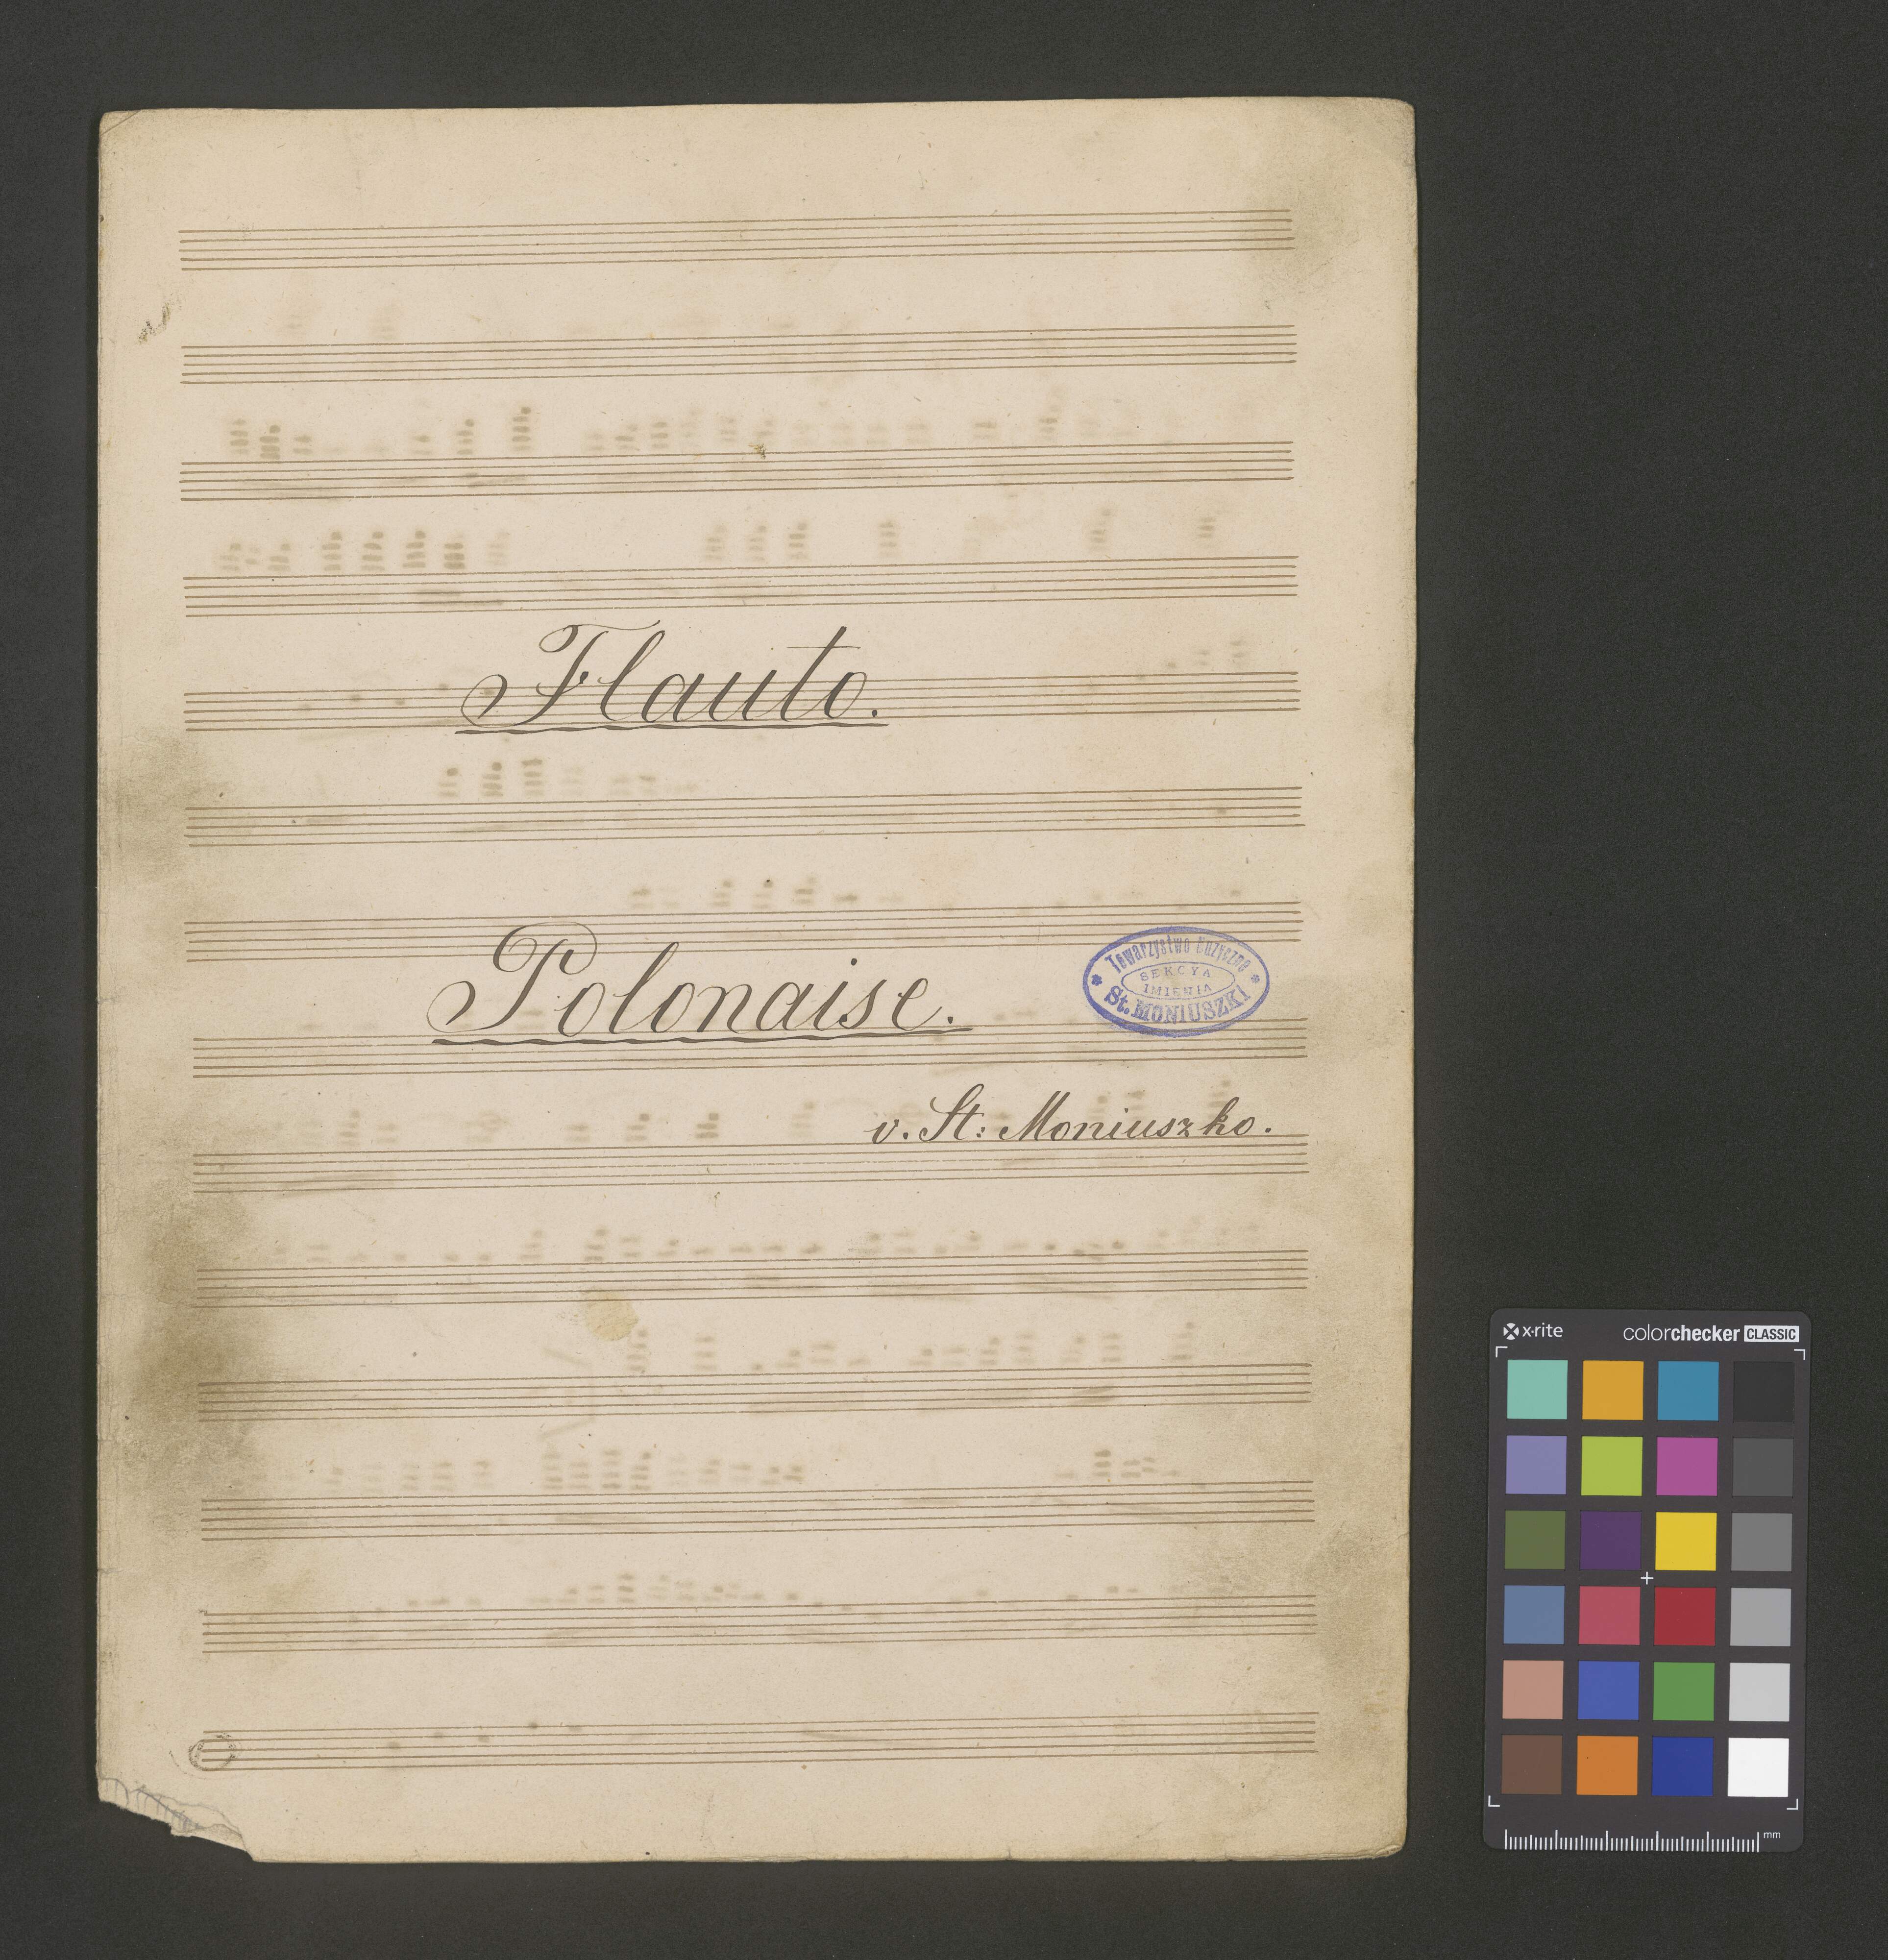 Flauto.
Polonaise.
Towarzystwo Muzyczne
SEKCYA
IMIENIA
St. MONIUSZKI
v. St: Moniuszko.
x·rite
colorchecker CLASSIC
mm